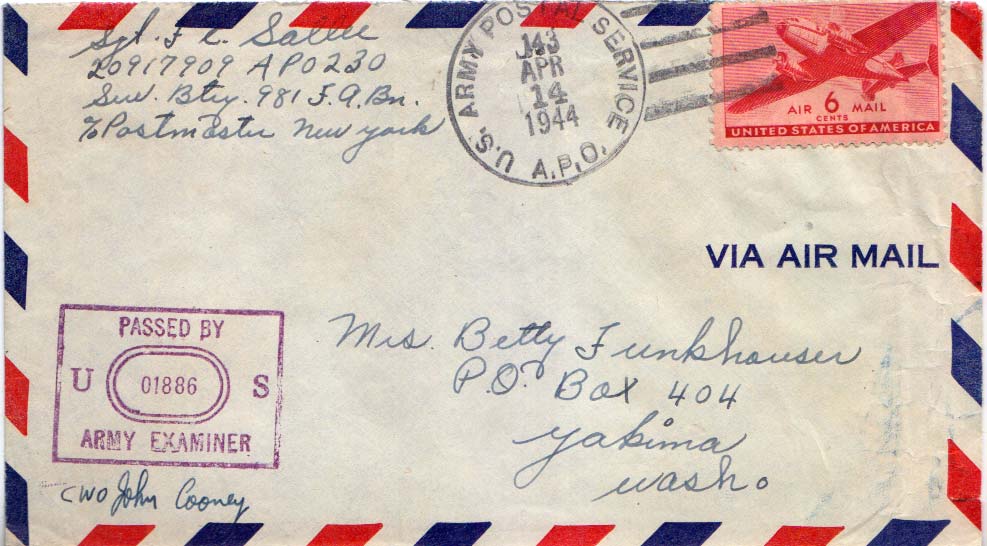 Sgt. F. C. Sallee
20917909 APO 230
Serv. Btry. 981 F.A. Bn.
c/o Postmaster New York
U.S. ARMY POSTAL SERVICE
143
APR
14
1944
A.P.O.
AIR 6 MAIL
CENTS
UNITED STATES OF AMERICA
VIA AIR MAIL
PASSED BY
U 01886 S
ARMY EXAMINER
CWO John Cooney
Mrs. Betty Funkhouser
P.O. Box 404
Yakima
Wash.